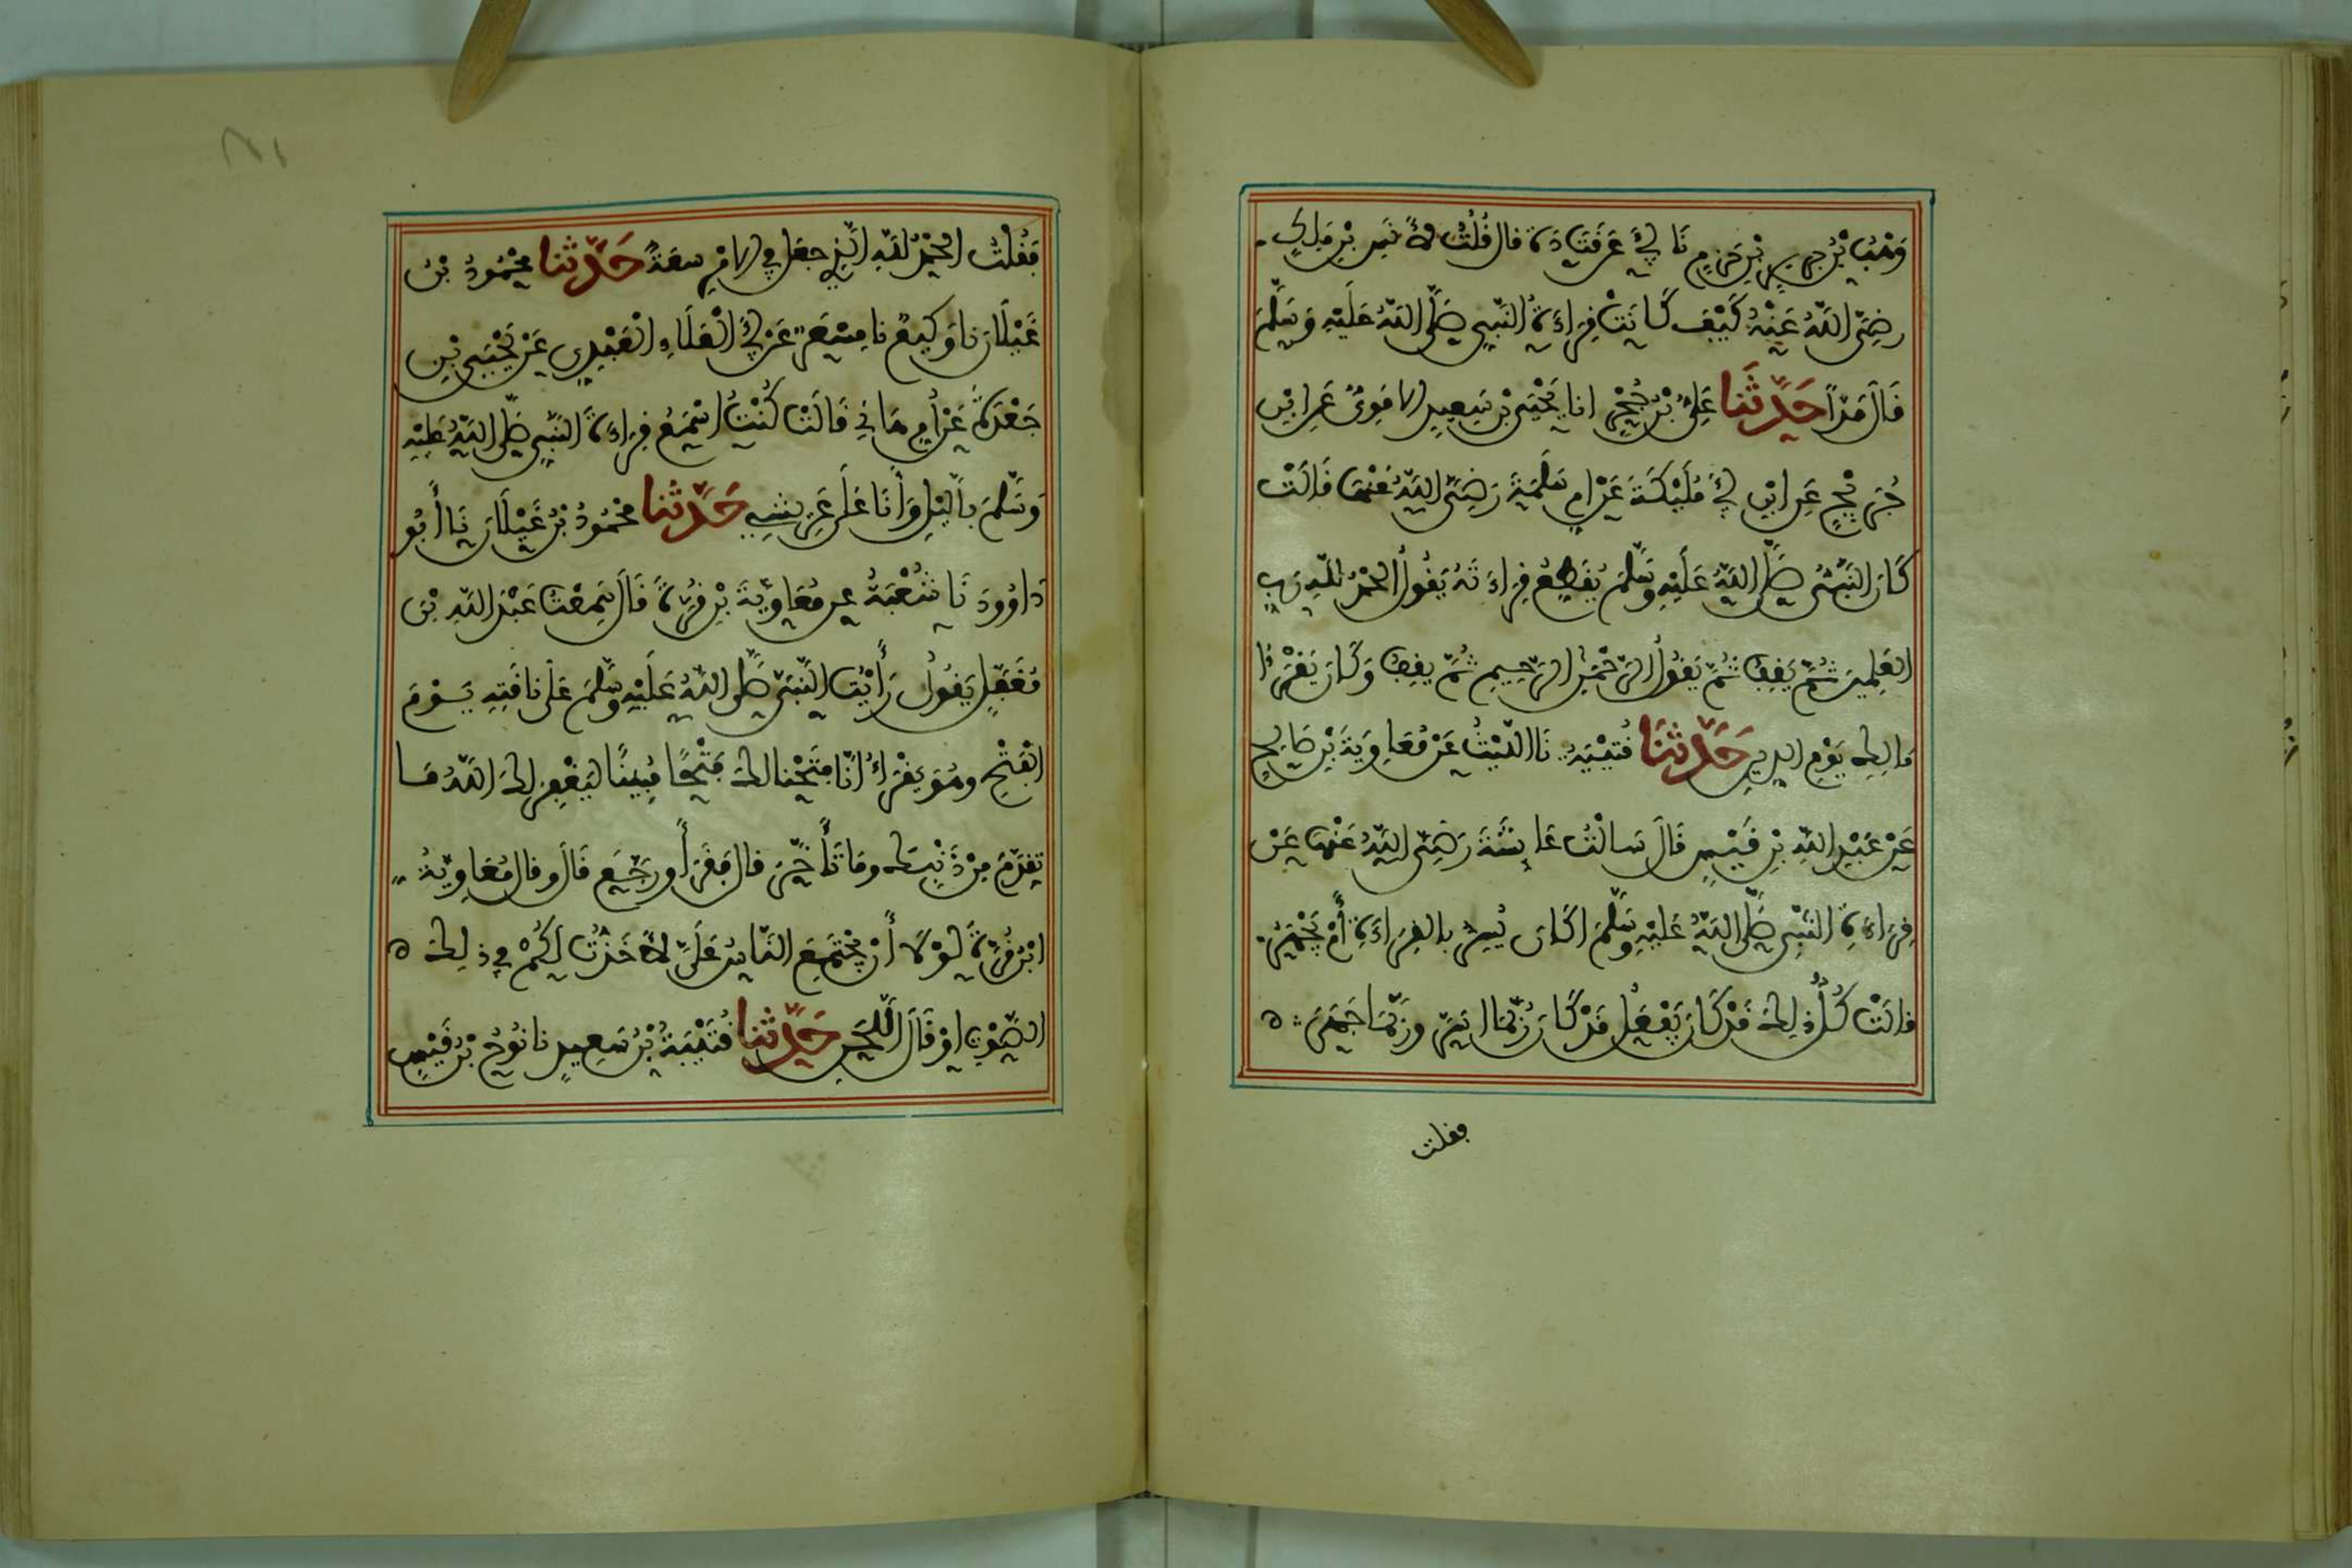 وَهْبُ بْنُ جَرِيرِ بْنِ حَزِمٍ نَا أَبِي عَن قَتَادَةَ قال قُلْتُ لأنَسِ بْنِ مَلِكٍ
رضِيَ اللَّهُ عَنْهُ كَيْفَ كَانَتْ قِرَاءَةُ النَّبِيِّ صَلَّى اللَّهُ عَلَيْهِ وَسَلَّمَ
قَالَ مَدّاً حَدَّثَنَا عَلِيُّ بْنُ حُجْرٍ انا يَحْيَى بْنُ سَعِيدٍ الامَوِيُّ عَنِ ابْنِ
جُرَيْجٍ عَنِ ابْنِ أَبِي مُلَيْكَةَ عَنْ امِ سَلَمَةَ رَضِيَ اللَّهُ عَنْهَا قَالَتْ
كَانَ النَّبِيُّ صَلَّى اللَّهُ عَلَيْهِ وَسَلَّمَ يُقَطِّعُ قِرَاءَتَهُ يَقُولُ الحَمْدُ لِلَّهِ رَبِّ
العَلَمِينَ ثُمَّ يَقِفُ ثُمَّ يَقُولُ الرَّحْمَنِ الرَّحِيمِ ثُمَّ يقِفُ وَكَانَ يَقْرَؤُا
مَالِكِ يَوْمِ الدِّينِ حَدَّثَنَا قُتَيْبَةُ نَا اللَّيْثُ عَنْ مُعَاوِيَةَ بْنِ صَالِحٍ
عَنْ عَبْدِ اللَّهِ بْنِ قَيْسٍ قَالَ سَالْتُ عَائِشَةَ رَضِيَ اللَّهُ عَنْهَا عَنْ
قِرَاءَةِ النَّبِيِّ صَلَّى اللَّهُ عَلَيْهِ وَسَلَّمَ اكَانَ يُسِرُّ بالقِرَاءَةِ أَمْ يَجْهَرُ
قالَتْ كُلُّ ذَلِكَ قَدْ كَانَ يَفْعَلُ قَدْ كَانَ رُبَّمَا اسَرَّ ورُبَّمَا جَهَرَ
فقلت
فَقُلْتُ الحَمْدُ لِلَّهِ الَّذِي جعَلَ فِي الامْرِ سعَةً حَدَّثَنَا مَحْمُودُ بْنُ
غَيْلَانَ نا وَكِيعٌ نا مِسْعَرٌ عَنْ أَبِي الْعَلَاءِ الْعَبْدِي عَنْ يَحْيَى بْنِ
جَعْدَةَ عَنْ أُمِ هَانِي قَالَتْ كُنْتُ اسْمَعُ قِرَاءَةَ النَّبِيِّ صَلَّى اللَّهُ عَلَيْهِ
وَسَلَّمَ بِاللَّيْلِ وَأَنَا عَلَى عَرِيشِي حَدَّثَنَا مَحْمُودُ بْنُ غَيْلَانَ نَا أَبُو
دَاوُودَ نَا شُعْبَةُ عن مُعَاوِيَةَ بْنِ قُرَّةَ قَالَ سَمِعْتُ عَبْدَ اللَّهِ بْنَ
مُغَفَّلٍ يَقُولُ رَأَيْتُ النَّبِيَّ صَلَّى اللَّهُ عَلَيْهِ وَسَلَّمَ عَلَى نَاقَتِهِ يَوْمَ
الْفَتْحِ وهُوَ يَقْرَأُ انَّا فَتَحْنا لكَ فَتْحًا مُبِينًا لِيَغْفِرَ لكَ اللَّهُ مَا
تقَدَّمَ مِنْ ذَنْبِكَ ومَا تَأَخَّرَ قال فَقَرَأَ ورجَّعَ قَالَ وقال مُعَاوِيَةُ
ابْنُ قُرَّةَ لَوْلَا أَنْ يَجْتَمِعَ النَّاسُ عَلَيَّ لأخَذْتُ لَكُمْ فِي ذَلِكَ
الصَّوْتِ اوْ قَالَ اللَّحْنِ حَدَّثَنَا قُتَيْبَةُ بْنُ سَعِيدٍ نا نُوحُ بْنُ قَيْسٍ